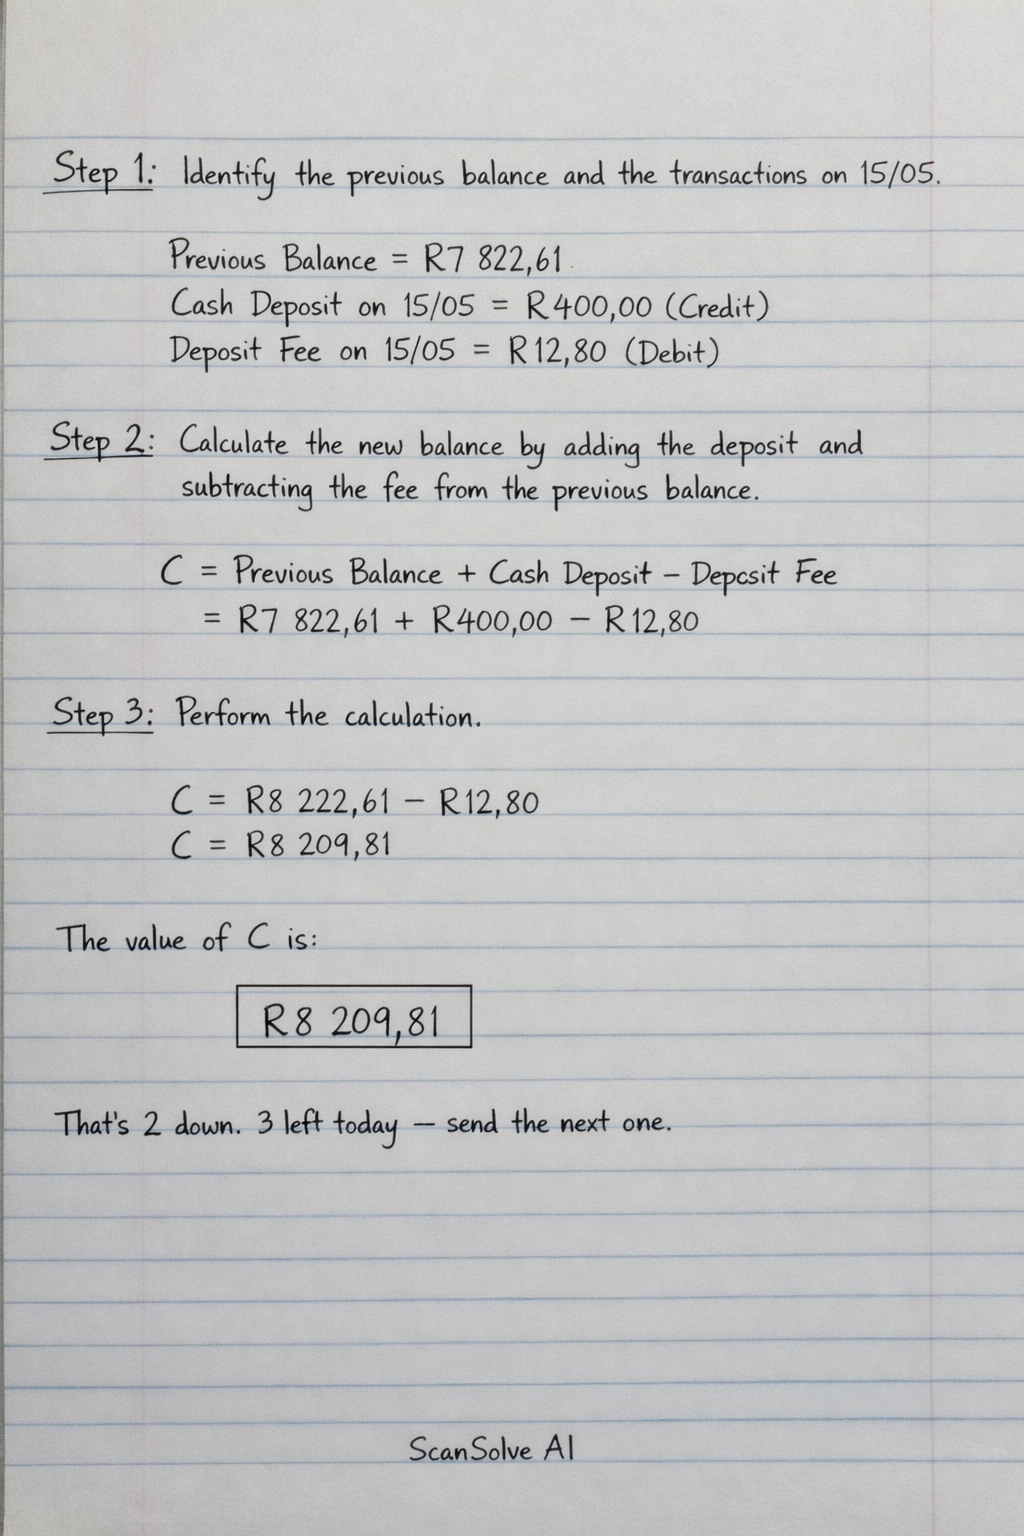 Step 1: Identify the previous balance and the transactions on 15/05.
Previous Balance = R7 822,61
Cash Deposit on 15/05 = R400,00 (Credit)
Deposit Fee on 15/05 = R12,80 (Debit)
Step 2: Calculate the new balance by adding the deposit and
subtracting the fee from the previous balance.
C = Previous Balance + Cash Deposit – Depcsit Fee
= R7 822,61 + R400,00 – R12,80
Step 3: Perform the calculation.
C = R8 222,61 – R12,80
C = R8 209,81
The value of C is:
R8 209,81
That's 2 down. 3 left today — send the next one.
ScanSolve AI